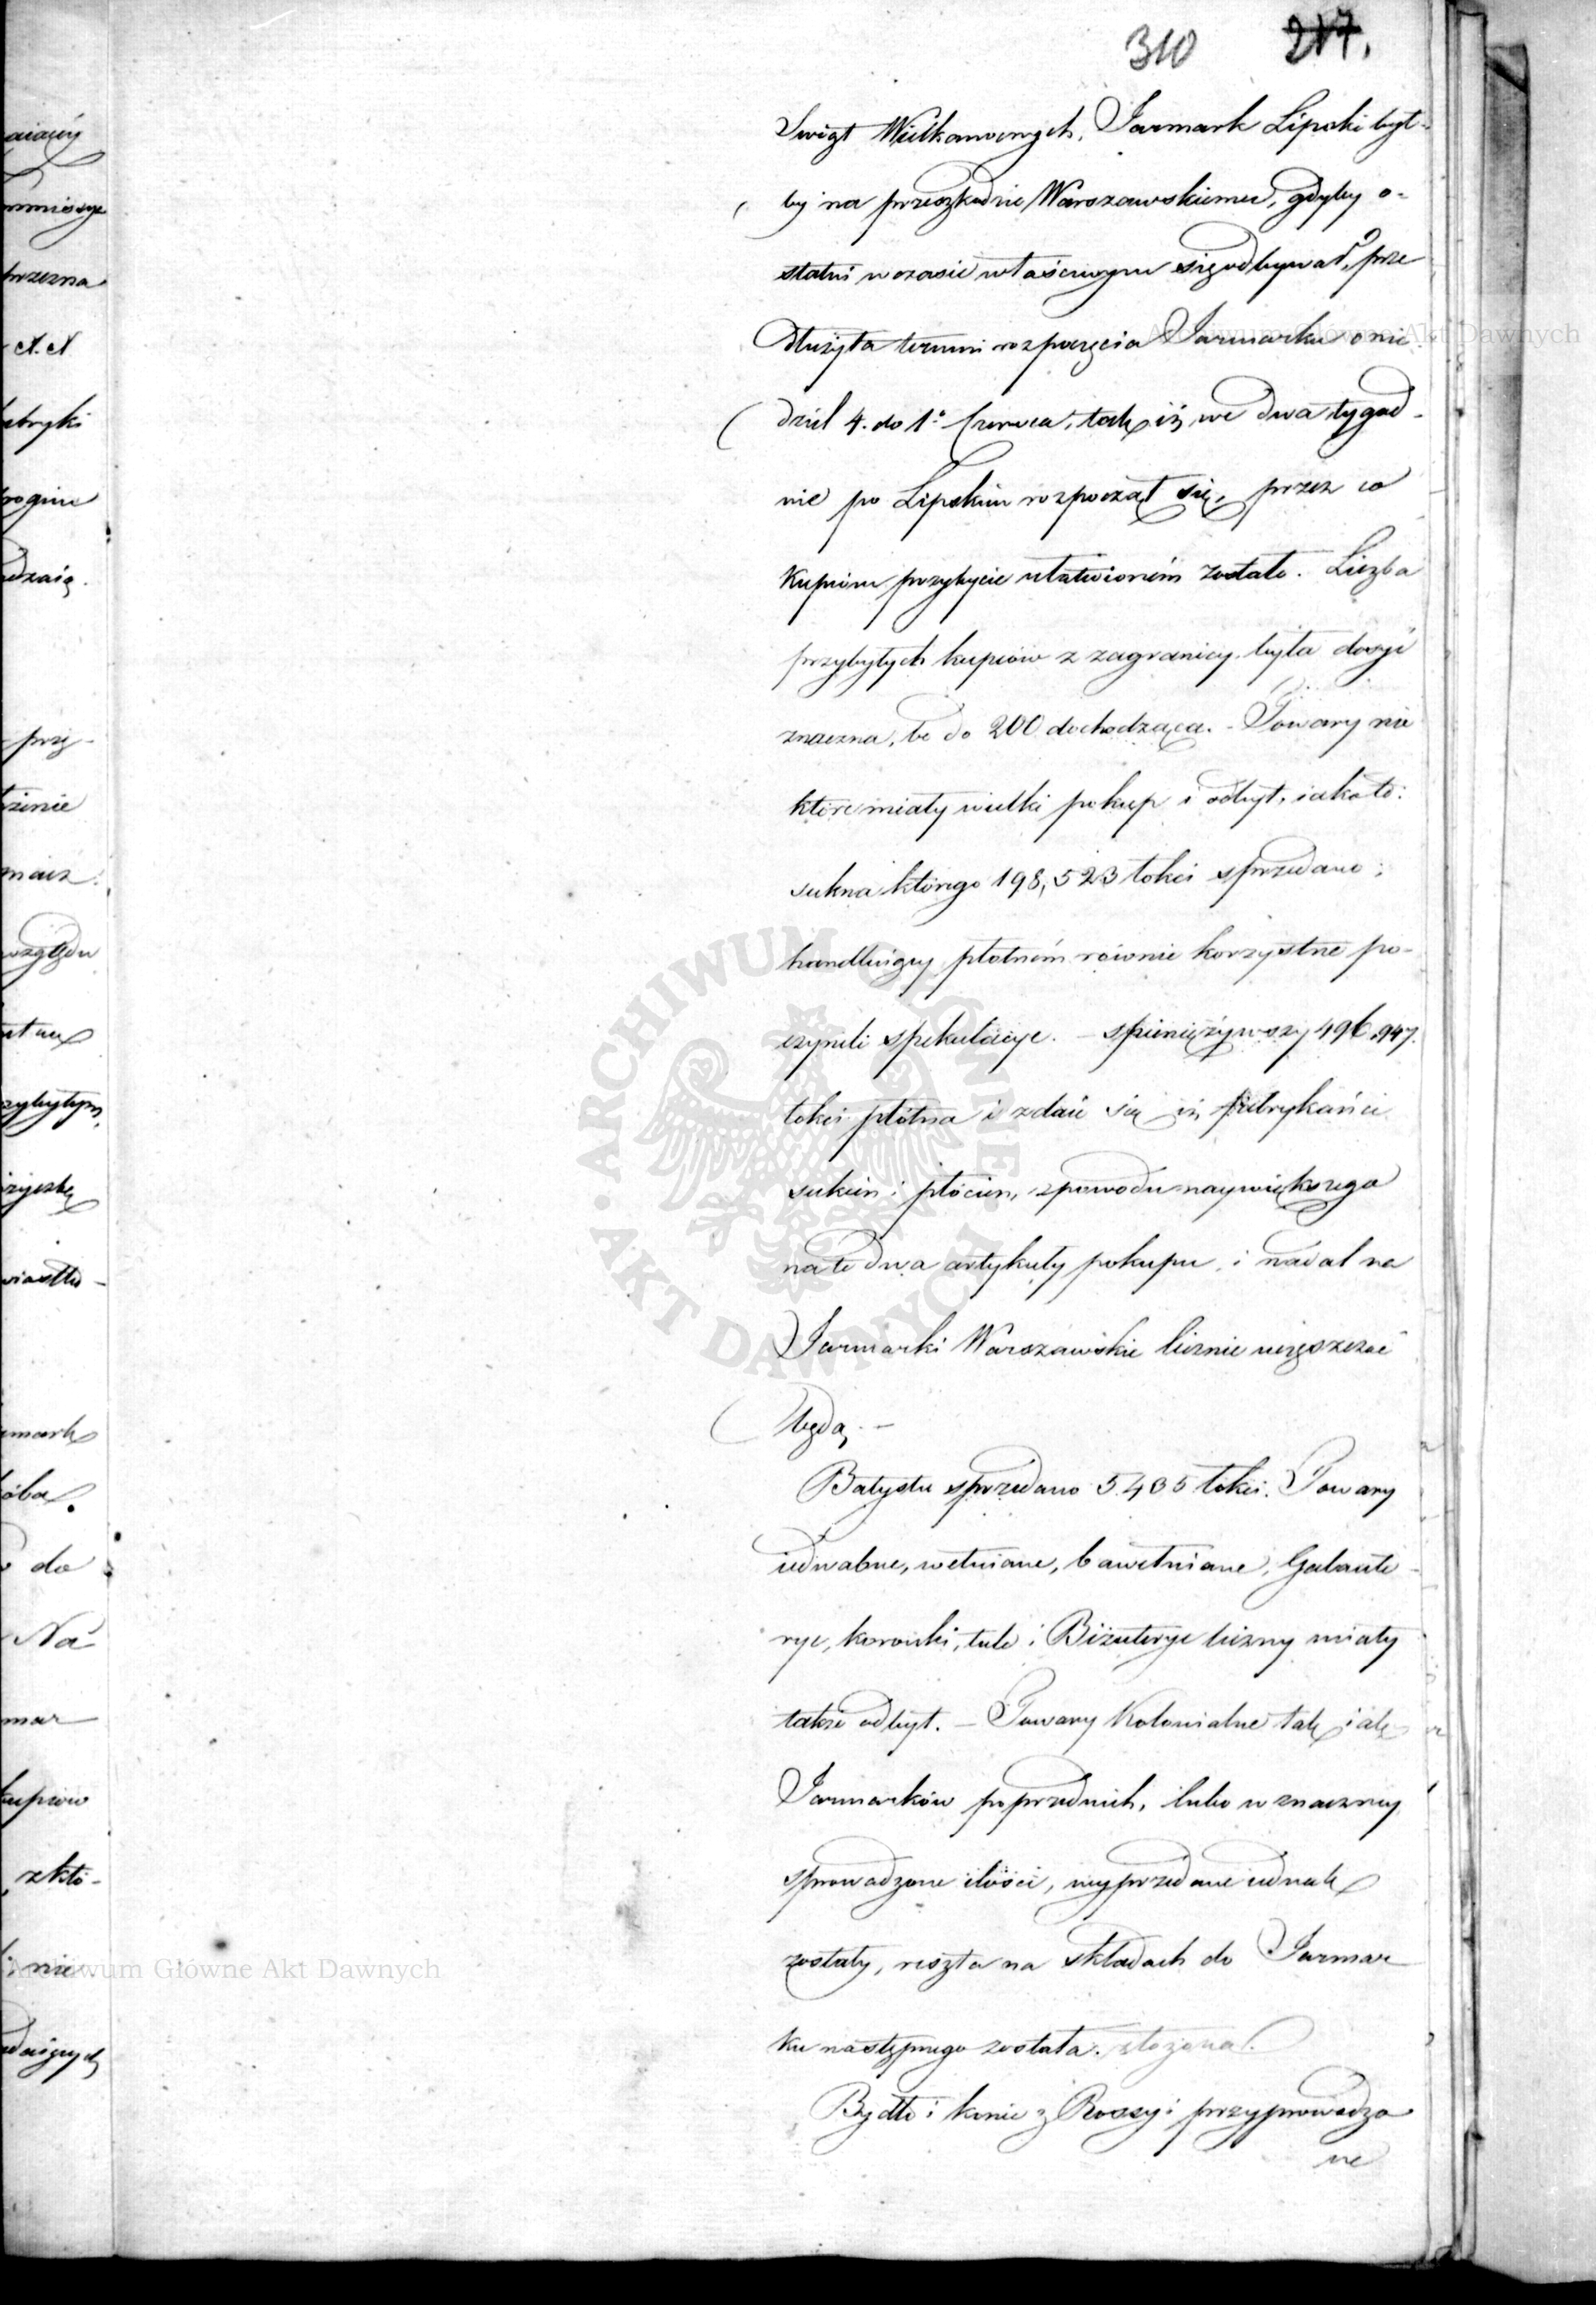 310 217.
Swiąt Wielkanocnych, Jarmark Lipski był-
by na przeszkodzie Warszawskiemu, gdyby o-
statni w czasie właściwym się odbywał, prze
dłużyła termin rozpoczęcia Jarmarku o nie
dziel 4. do 1º Czerwca, tak iż we dwa tygod-
nie po Lipskim rozpoczął się, przez co
Kupcom przybycie ułatwioném zostało. Liczba
przybyłych kupców z zagranicy była dosyć
znaczna, bo do 200 dochodząca. - Towary nie
które miały wielki pokup i odbyt, iako to:
sukna którego 198,523 łokci sprzedano;
handluiący płótnem równie korzystne po-
czynili spekulacye. - spieniężywszy 496,947.
łokci płótna i zdaie się iż fabrykańci
sukien i płócien, z powodu naywiększego
na te dwa artykuły pokupu, i nadal na
Jarmarki Warszawskie licznie uczęszczać
będą. -
Batystu sprzedano 5435 łokci. Towary
iedwabne, wełniane, bawełniane, Galante-
rye, koronki, tule i Bizuterye liczny miały
także odbyt. - Towary Kolonialne tak iak
Jarmarków poprzednich, lubo w znaczney
sprowadzone ilości, wyprzedane iednak
zostały, reszta na składach do Jarmar
ku następnego została. złożona.
Bydło i konie z Rossyi przyprowadzo
ne
aiący
przezna
N. N
abryki
przy-
żenie
względu
przybyłym
do
Na
mar
kupców
z któ-
nie
Archiwum Główne Akt Dawnych
Archiwum Główne Akt Dawnych
ARCHIWUM GŁÓWNE AKT DAWNYCH